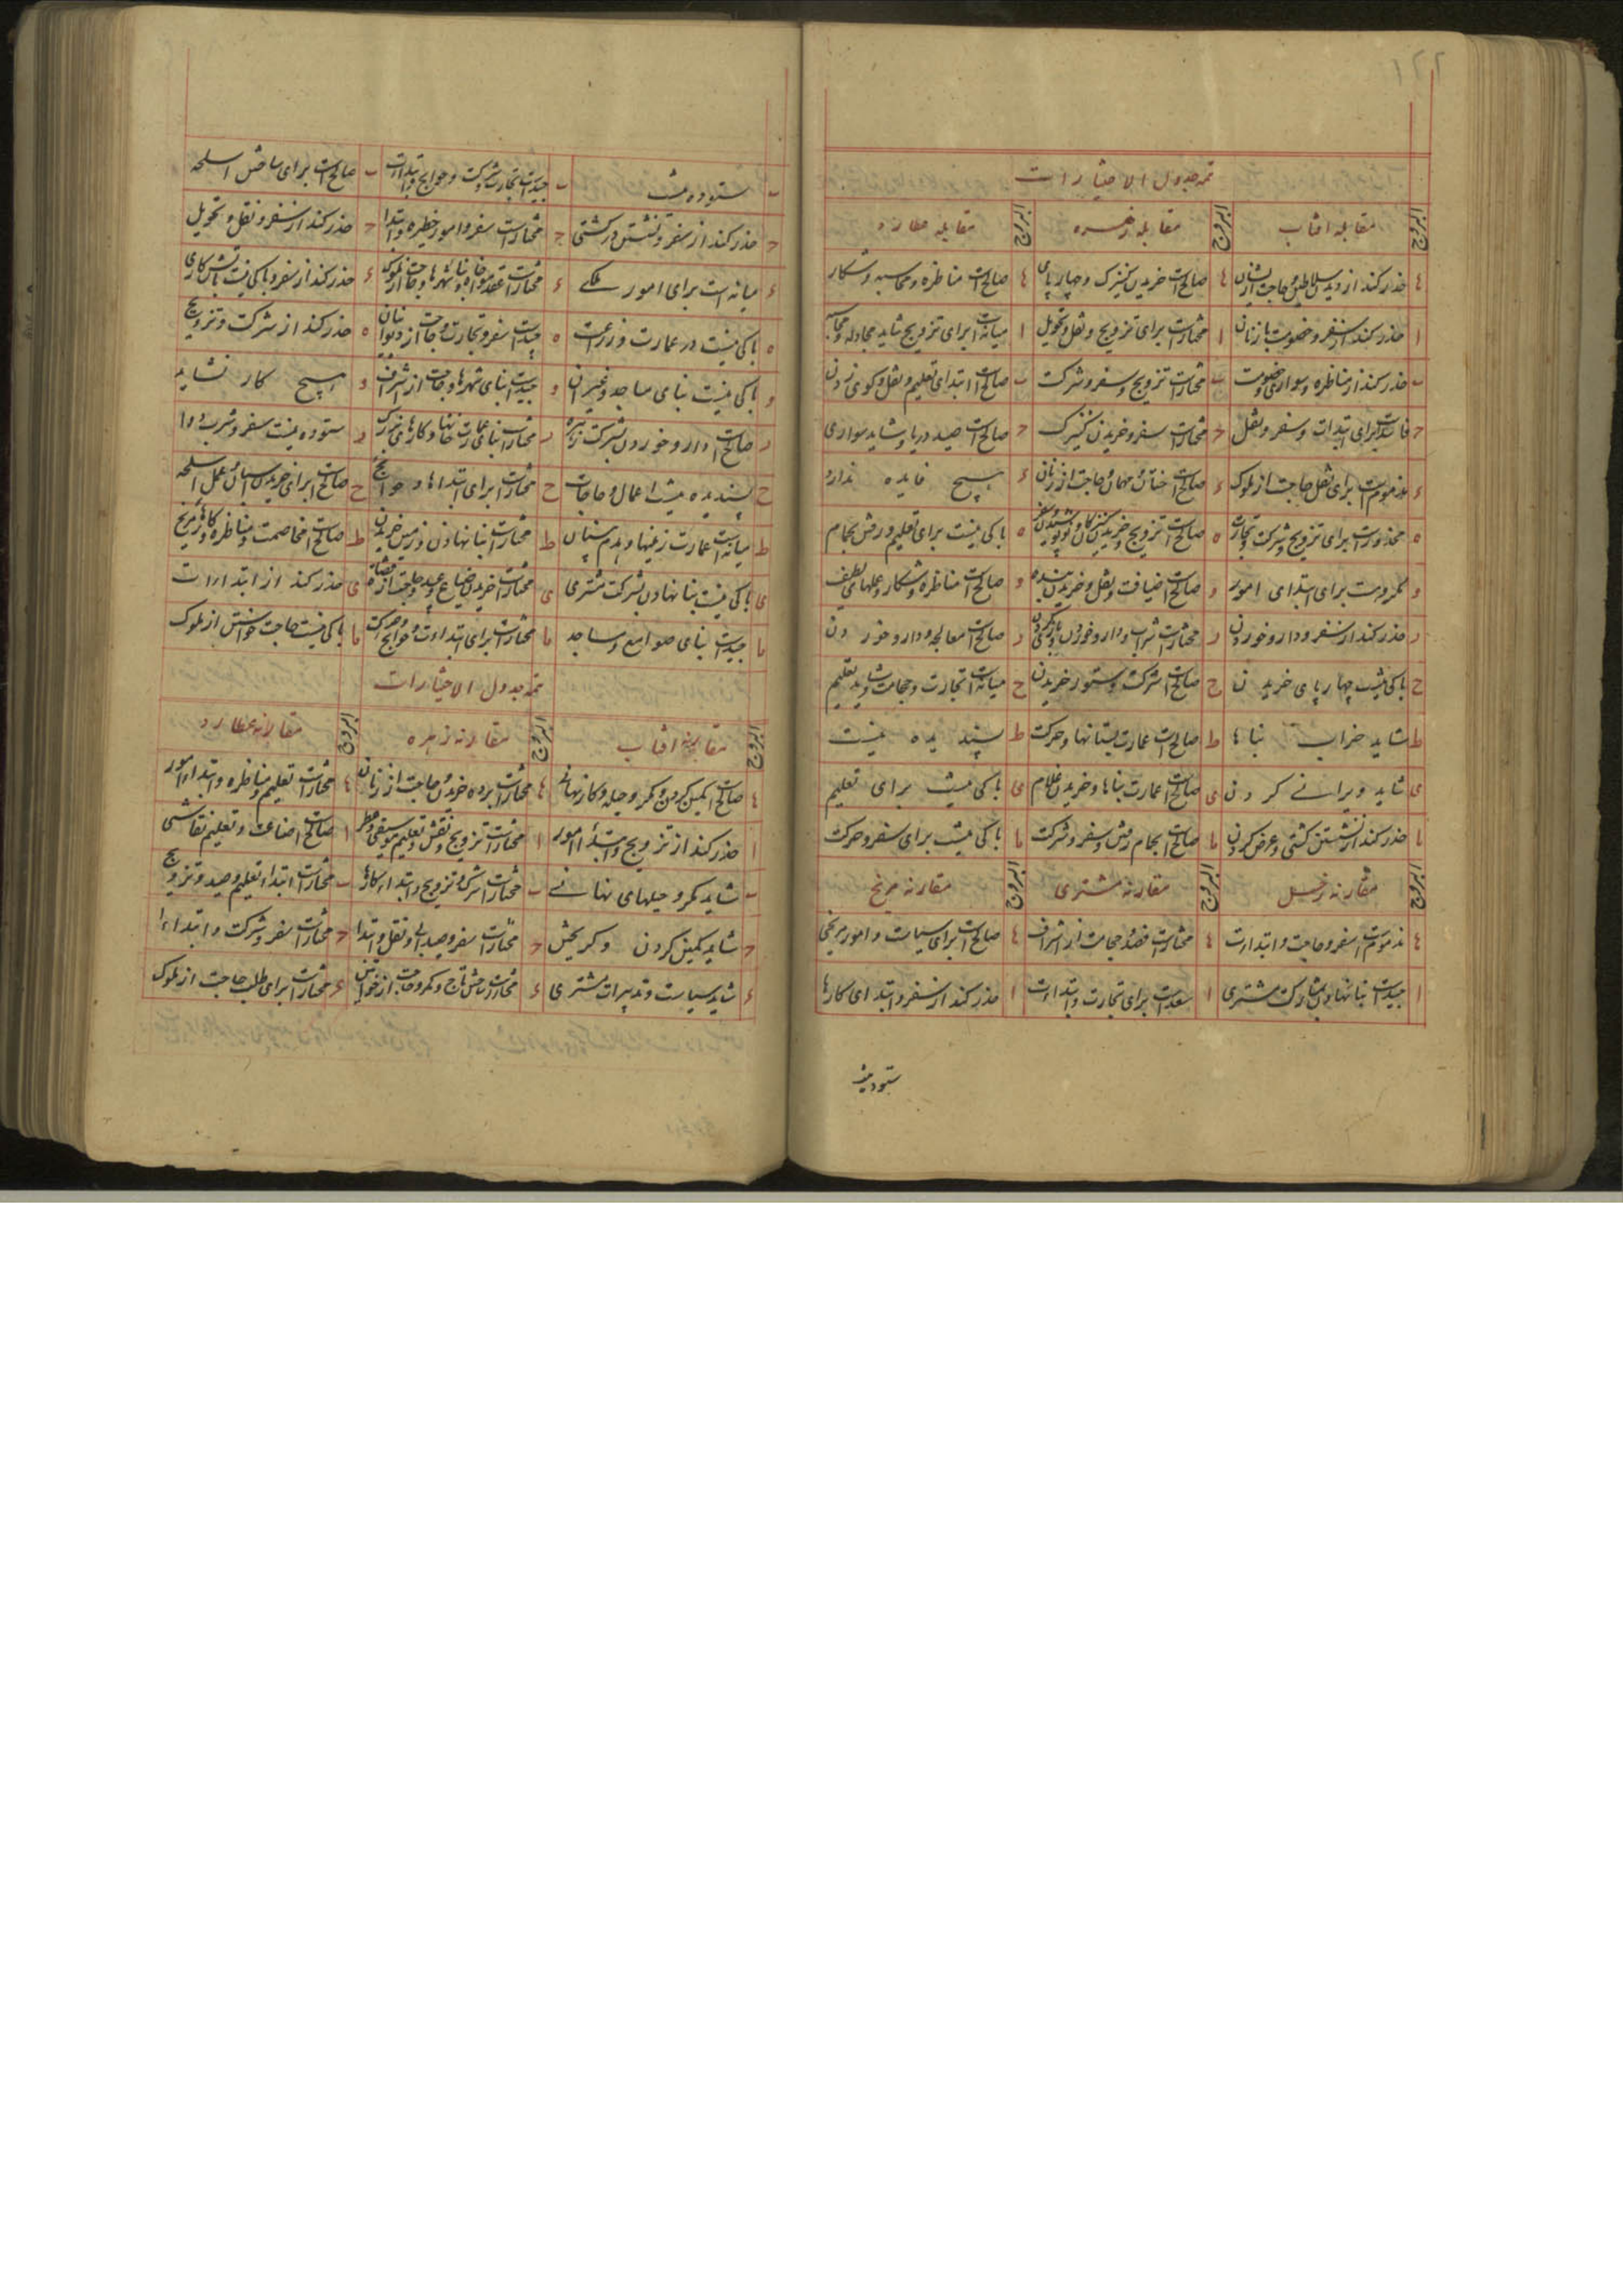 ۱۲۲
تتمه جدول الاختیارات
البروج مقابله افتاب البروج مقابله زهره البروج مقابله عطارد
حذر کند از دیدن سلاطین و حاجت از ایشان صالح است خریدن کنیزک و چهارپای صالح است مناظره و محاسبه و شکار
ا حذر کند از سفر و خصومت با زنان ا مختار است برای تزویج و نقل و تحویل ا میانه است برای تزویج شاید مجادله و محاسبه
ب حذر کند از مناظره و سواری و خصومت ب مختار است تزویج و سفر و شرکت ب صالح است ابتدای تعلیم و نقل و کوی زدن
ح برای ابتداات و سفر و نقل ح مختار است سفر و خریدن کنیزک ح صالح است صید دریا و شاید سواری
ء مذموم است برای نقل حاجت از ملوک ء صالح است ختان و مهمان و حاجت از زنان ء هیچ فایده ندارد
ه محذور است برای تزویج و شرکت و تجارت ه صالح است تزویج و خریدن کنیزکان و پوشیدن ه باکی نیست برای تعلیم و رفتن بحمام
و مکروهست برای ابتدای امور و صالح است ضیافت و نقل و خریدن بنده و صالح است مناظره و شکار و عملهای لطیف
ر حذر کند از سفر و دارو خوردن ر مختار است شراب و دارو خوردن ر صالح است معالجه و دارو خوردن
ح باکی نیست چهارپای خریدن ح صالح است شرکت و ستور خریدن ح میانه است تجارت و حجامت و شاید تعلیم
ط شاید خراب بناها ط صالح است عمارت بستانها و حرکت ط پسندیده نیست
ی شاید ویرانی کردن ی صالح است عمارت بناها و خریدن غلام ی باکی نیست برای تعلیم
یا حذر کند از نشستن کشتی و عرض کردن یا صالح است بحمام رفتن و سفر و شرکت یا باکی نیست برای سفر و حرکت
البروج مقارنه زحل البروج مقارنه مشتری البروج مقارنه مریخ
مذموم است سفر و حاجت و ابتداات مختار است حاجت از اشراف صالح است برای سیاست و امور مریخی
ا جید است بنا نهادن بمشارکت مشتری ا سعد است برای تجارت و ابتداات ا حذر کند از سفر و ابتدای کارها
ستوده نیست
ب ستوده نیست ب جید است تجارت و شرکت و حوایج و ابتداات ب صالح است برای ساختن اسلحه
ح حذر کند از سفر و نشستن در کشتی ح مختار است سفر و امور خطیره و ابتدا ح حذر کند از سفر و نقل و تحویل
ء میانه است برای امور ملکی ء مختار است عقد و بنای شهرها و حاجت از ملوک ء حذر کند از سفر و باکی نیست
ه باکی نیست در عمارت و زراعت ه جید است سفر و تجارت و حاجت از دیوانیان ه حذر کند از شرکت و تزویج
و باکی نیست بنای مساجد و غیر آن و جید است بنای شهرها و حاجت از اشراف و هیچ کار نشاید
ر صالح است دارو خوردن بشرکت زهره ر مختار است بنای عمارت خانها و کارهای بزرگ ر ستوده نیست سفر و شرب دوا
ح پسندیده نیست اعمال و حاجات ح مختار است برای ابتداها و حوایج ح صالح است برای خریدن اسپان و عمل اسلحه
ط میانه است عمارت زمینها و هدم بنیان ط مختار است بنا نهادن و زمین خریدن ط صالح است مخاصمت و مناظره و کارهای مریخ
ی باکی نیست بنا نهادن بشرکت مشتری ی مختار است خریدن ضیاع و عبید و حاجت از قضاة ی حذر کند از ابتداات
یا جید است بنای صوامع و مساجد یا مختار است برای ابتداات و حوایج و حرکت یا باکی نیست حاجت خواستن از ملوک
تتمه جدول الاختیارات
البروج مقارنه افتاب البروج مقارنه زهره البروج مقارنه عطارد
صالح است کمین کردن و مکر و حیله و کار نهانی مختار است برده خریدن و حاجت از زنان مختار است تعلیم و مناظره و ابتداء امور
ا حذر کند از تزویج و ابتداء امور ا مختار است تزویج و نقش و تعلیم موسیقی و عطر ا صالح است صناعت و تعلیم نقاشی
ب شاید مکر و حیلهای نهانی ب مختار است شرکت و تزویج و ابتداء کارها ب مختار است ابتداء تعلیم و صید و تزویج
ح شاید کمین کردن و گریختن ح مختار است سفر و صید آبی و نقل و ابتدا ح مختار است سفر و شرکت و ابتداءها
ء شاید سیاست و تدبیرات مشتری ء مختار است تاج و کمر و حاجت از خواتین ء مختار است برای طلب حاجت از ملوک